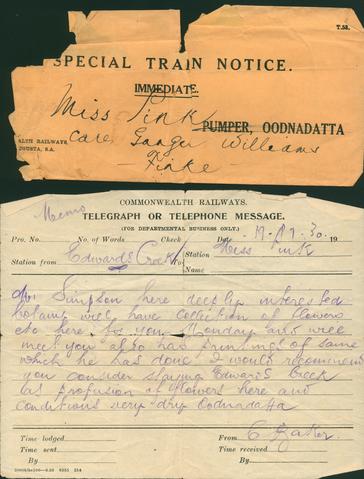 T.53.
SPECIAL TRAIN NOTICE.
IMMEDIATE.
Miss Pink
PUMPER, OODNADATTA
Care Ganger Williams
ALTH RAILWAYS,
UGUSTA, S.A.
Finke
COMMONWEALTH RAILWAYS.
Memo
TELEGRAPH OR TELEPHONE MESSAGE.
(FOR DEPARTMENTAL BUSINESS ONLY.)
Pro. No. No. of Words Check Date 30 19
Station from Edwards Creek To Station Miss Pink
Name
Simpson here deeply interested
botany will have collection of flowers
etc here for you Monday and will
meet you also has paintings of same
which he has done I would recommend
you consider staying Edwards Creek
as profusion of flowers here and
conditions very dry Oodnadatta
Time lodged From C
Time sent Time received
By By